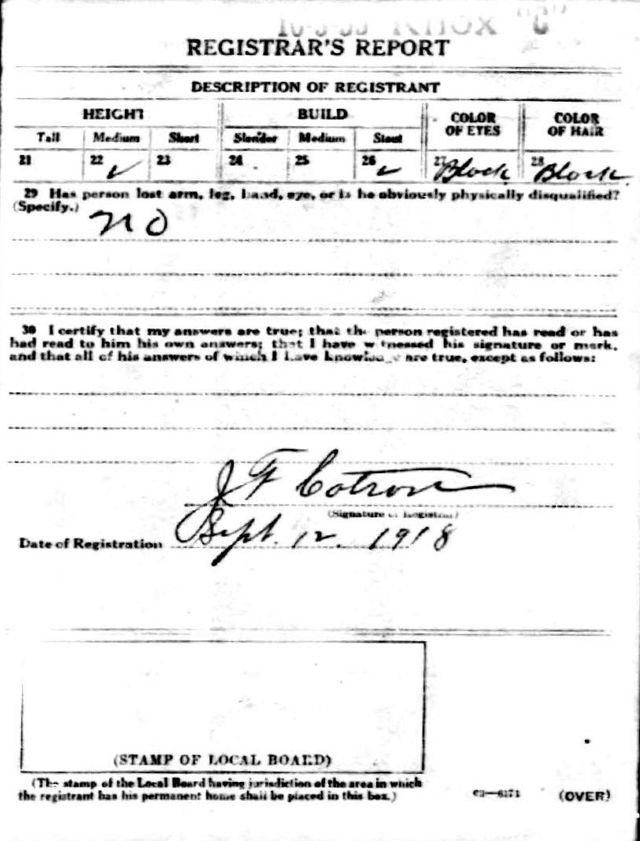 KNOX "C"
REGISTRAR'S REPORT
DESCRIPTION OF REGISTRANT
HEIGHT BUILD COLOR OF EYES COLOR OF HAIR
Tall Medium Short Slender Medium Stout
21 22 ✓ 23 24 25 26 ✓ 27 Black 28 Black
29 Has person lost arm, leg, hand, eye, or is he obviously physically disqualified?
(Specify.) no
30 I certify that my answers are true; that the person registered has read or has
had read to him his own answers; that I have witnessed his signature or mark,
and that all of his answers of which I have knowledge are true, except as follows:
J F Cotron
(Signature of Registrar)
Date of Registration Sept. 12. 1918
(STAMP OF LOCAL BOARD)
(The stamp of the Local Board having jurisdiction of the area in which
the registrant has his permanent home shall be placed in this box.)
(OVER)